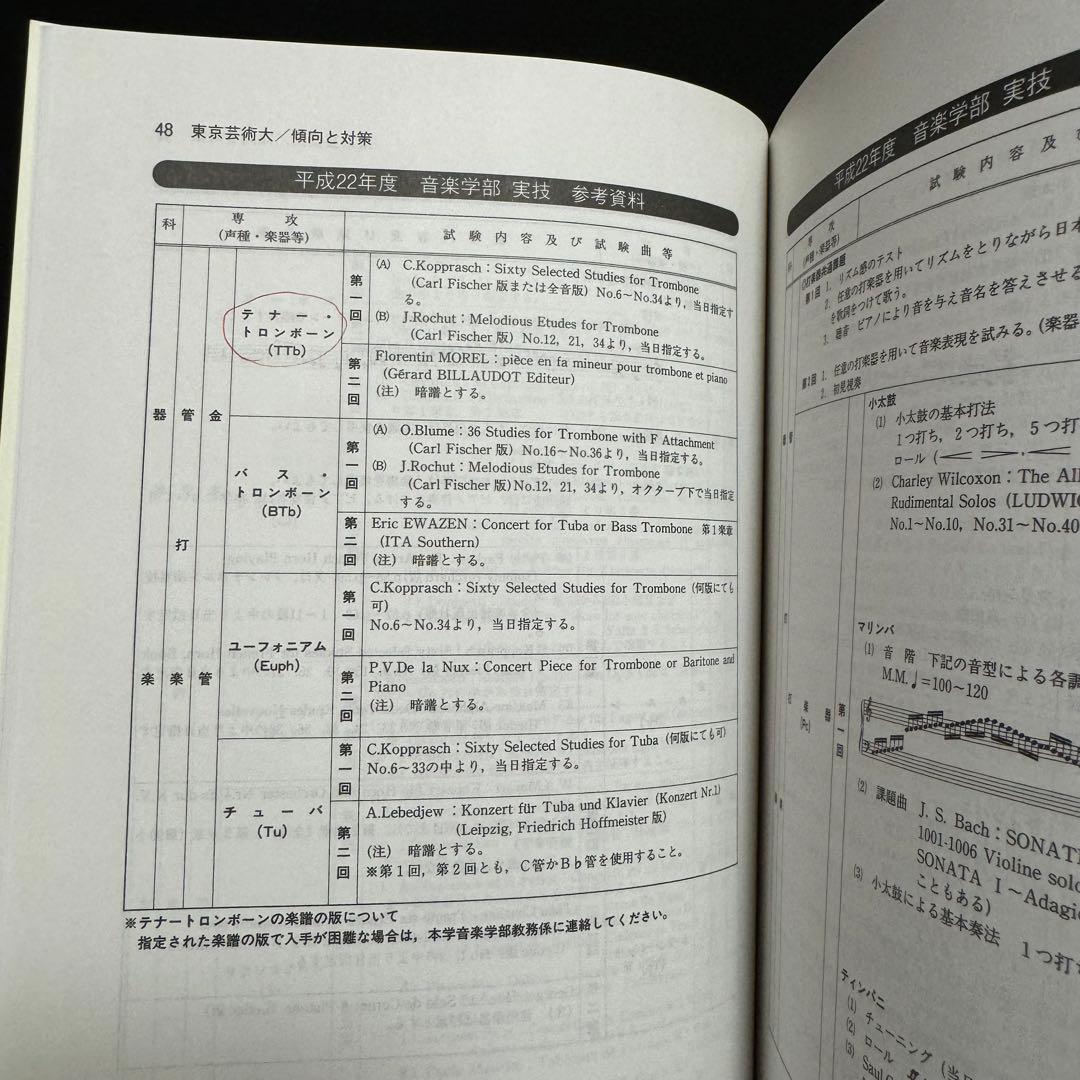 48 東京芸術大／傾向と対策
平成22年度 音楽学部 実技 参考資料
科
専攻
(声種・楽器等)
試験内容及び試験曲等
器管金
打
楽楽管
テナー・
トロンボーン
(TTb)
第一回
(A) C.Kopprasch：Sixty Selected Studies for Trombone
(Carl Fischer 版または全音版) No.6〜No.34より，当日指定す
る。
(B) J.Rochut：Melodious Etudes for Trombone
(Carl Fischer 版) No.12, 21, 34より，当日指定する。
第二回
Florentin MOREL：pièce en fa mineur pour trombone et piano
(Gérard BILLAUDOT Editeur)
(注) 暗譜とする。
バス・
トロンボーン
(BTb)
第一回
(A) O.Blume：36 Studies for Trombone with F Attachment
(Carl Fischer 版) No.16〜No.36より，当日指定する。
(B) J.Rochut：Melodious Etudes for Trombone
(Carl Fischer 版) No.12, 21, 34より，オクターブ下で当日指定
する。
第二回
Eric EWAZEN：Concert for Tuba or Bass Trombone 第1楽章
(ITA Southern)
(注) 暗譜とする。
ユーフォニアム
(Euph)
第一回
C.Kopprasch：Sixty Selected Studies for Trombone (何版にても
可)
No.6〜No.34より，当日指定する。
第二回
P.V.De la Nux：Concert Piece for Trombone or Baritone and
Piano
(注) 暗譜とする。
チューバ
(Tu)
第一回
C.Kopprasch：Sixty Selected Studies for Tuba (何版にても可)
No.6〜33の中より，当日指定する。
第二回
A.Lebedjew：Konzert für Tuba und Klavier (Konzert Nr.1)
(Leipzig, Friedrich Hoffmeister 版)
(注) 暗譜とする。
※第1回，第2回とも，C管かB♭管を使用すること。
※テナートロンボーンの楽譜の版について
指定された楽譜の版で入手が困難な場合は，本学音楽学部教務係に連絡してください。
平成22年度 音楽学部 実技
科
専攻
(声種・楽器等)
試験内容及び
◎打楽器共通課題
第1回 1. リズム感のテスト
2. 任意の打楽器を用いてリズムをとりながら日本
を歌詞をつけて歌う。
3. 聴音 ピアノにより音を与え音名を答えさせる
第2回 1. 任意の打楽器を用いて音楽表現を試みる。(楽器
2. 初見視奏
小太鼓
(1) 小太鼓の基本打法
1つ打ち，2つ打ち，5つ打
ロール
(2) Charley Wilcoxon：The All
Rudimental Solos (LUDWIG
No.1〜No.10, No.31〜No.40
打楽器
(Pc)
第一回
マリンバ
(1) 音階 下記の音型による各調
M.M.♩=100〜120
(2) 課題曲 J. S. Bach：SONATA
1001-1006 Violine solo
SONATA Ⅰ〜Adagio
こともある)
(3) 小太鼓による基本奏法 1つ打ち
ティンパニ
(1) チューニング (当日
(2) ロール
(3) Saul